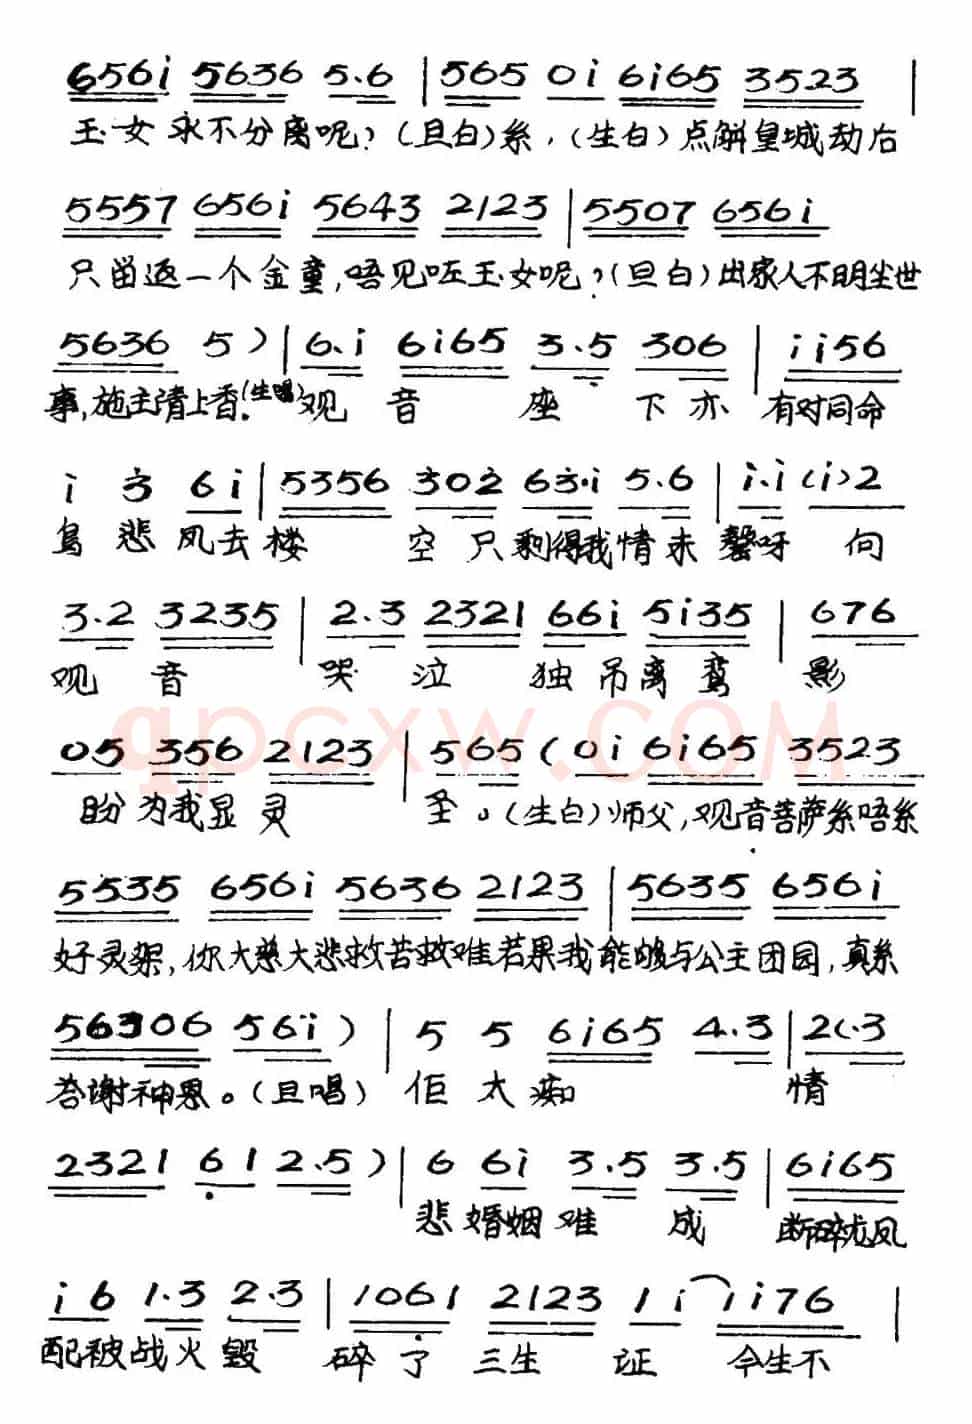 656i 5636 5.6 | 565 0i 6i65 3523 |
玉女永不分离呢？（旦白）系，（生白）点解皇城劫后
5557 656i 5643 2123 | 5507 656i
只留返一个金童，唔见咗玉女呢？（旦白）出家人不明尘世
5636 5 ) | 6.i 6i65 3.5 306 | ii56
事，施主请上香。（生唱）观音座下亦有对同命
i 3 6i | 5356 302 63.i 5.6 | i.i (i)2
鸟悲凤去楼空只剩得我情未罄呀向
3.2 3235 | 2.3 2321 66i 5i35 | 676
观音哭泣独吊离鸾影
05 356 2123 | 565 (0i 6i65 3523
盼为我显灵圣。（生白）师父，观音菩萨系唔系
qpcxw.com
5535 656i 5636 2123 | 5635 656i
好灵架，你大慈大悲救苦救难若果我能够与公主团圆，真系
56306 56i ) | 5 5 6i65 4.3 | 2(.3
答谢神恩。（旦唱）佢太痴情
2321 61 2.5 ) | 6 6i 3.5 3.5 | 6i65
悲婚姻难成断碎龙凤
i6 1.3 2.3 | 1061 2123 1i 1i76 |
配被战火毁碎了三生证今生不